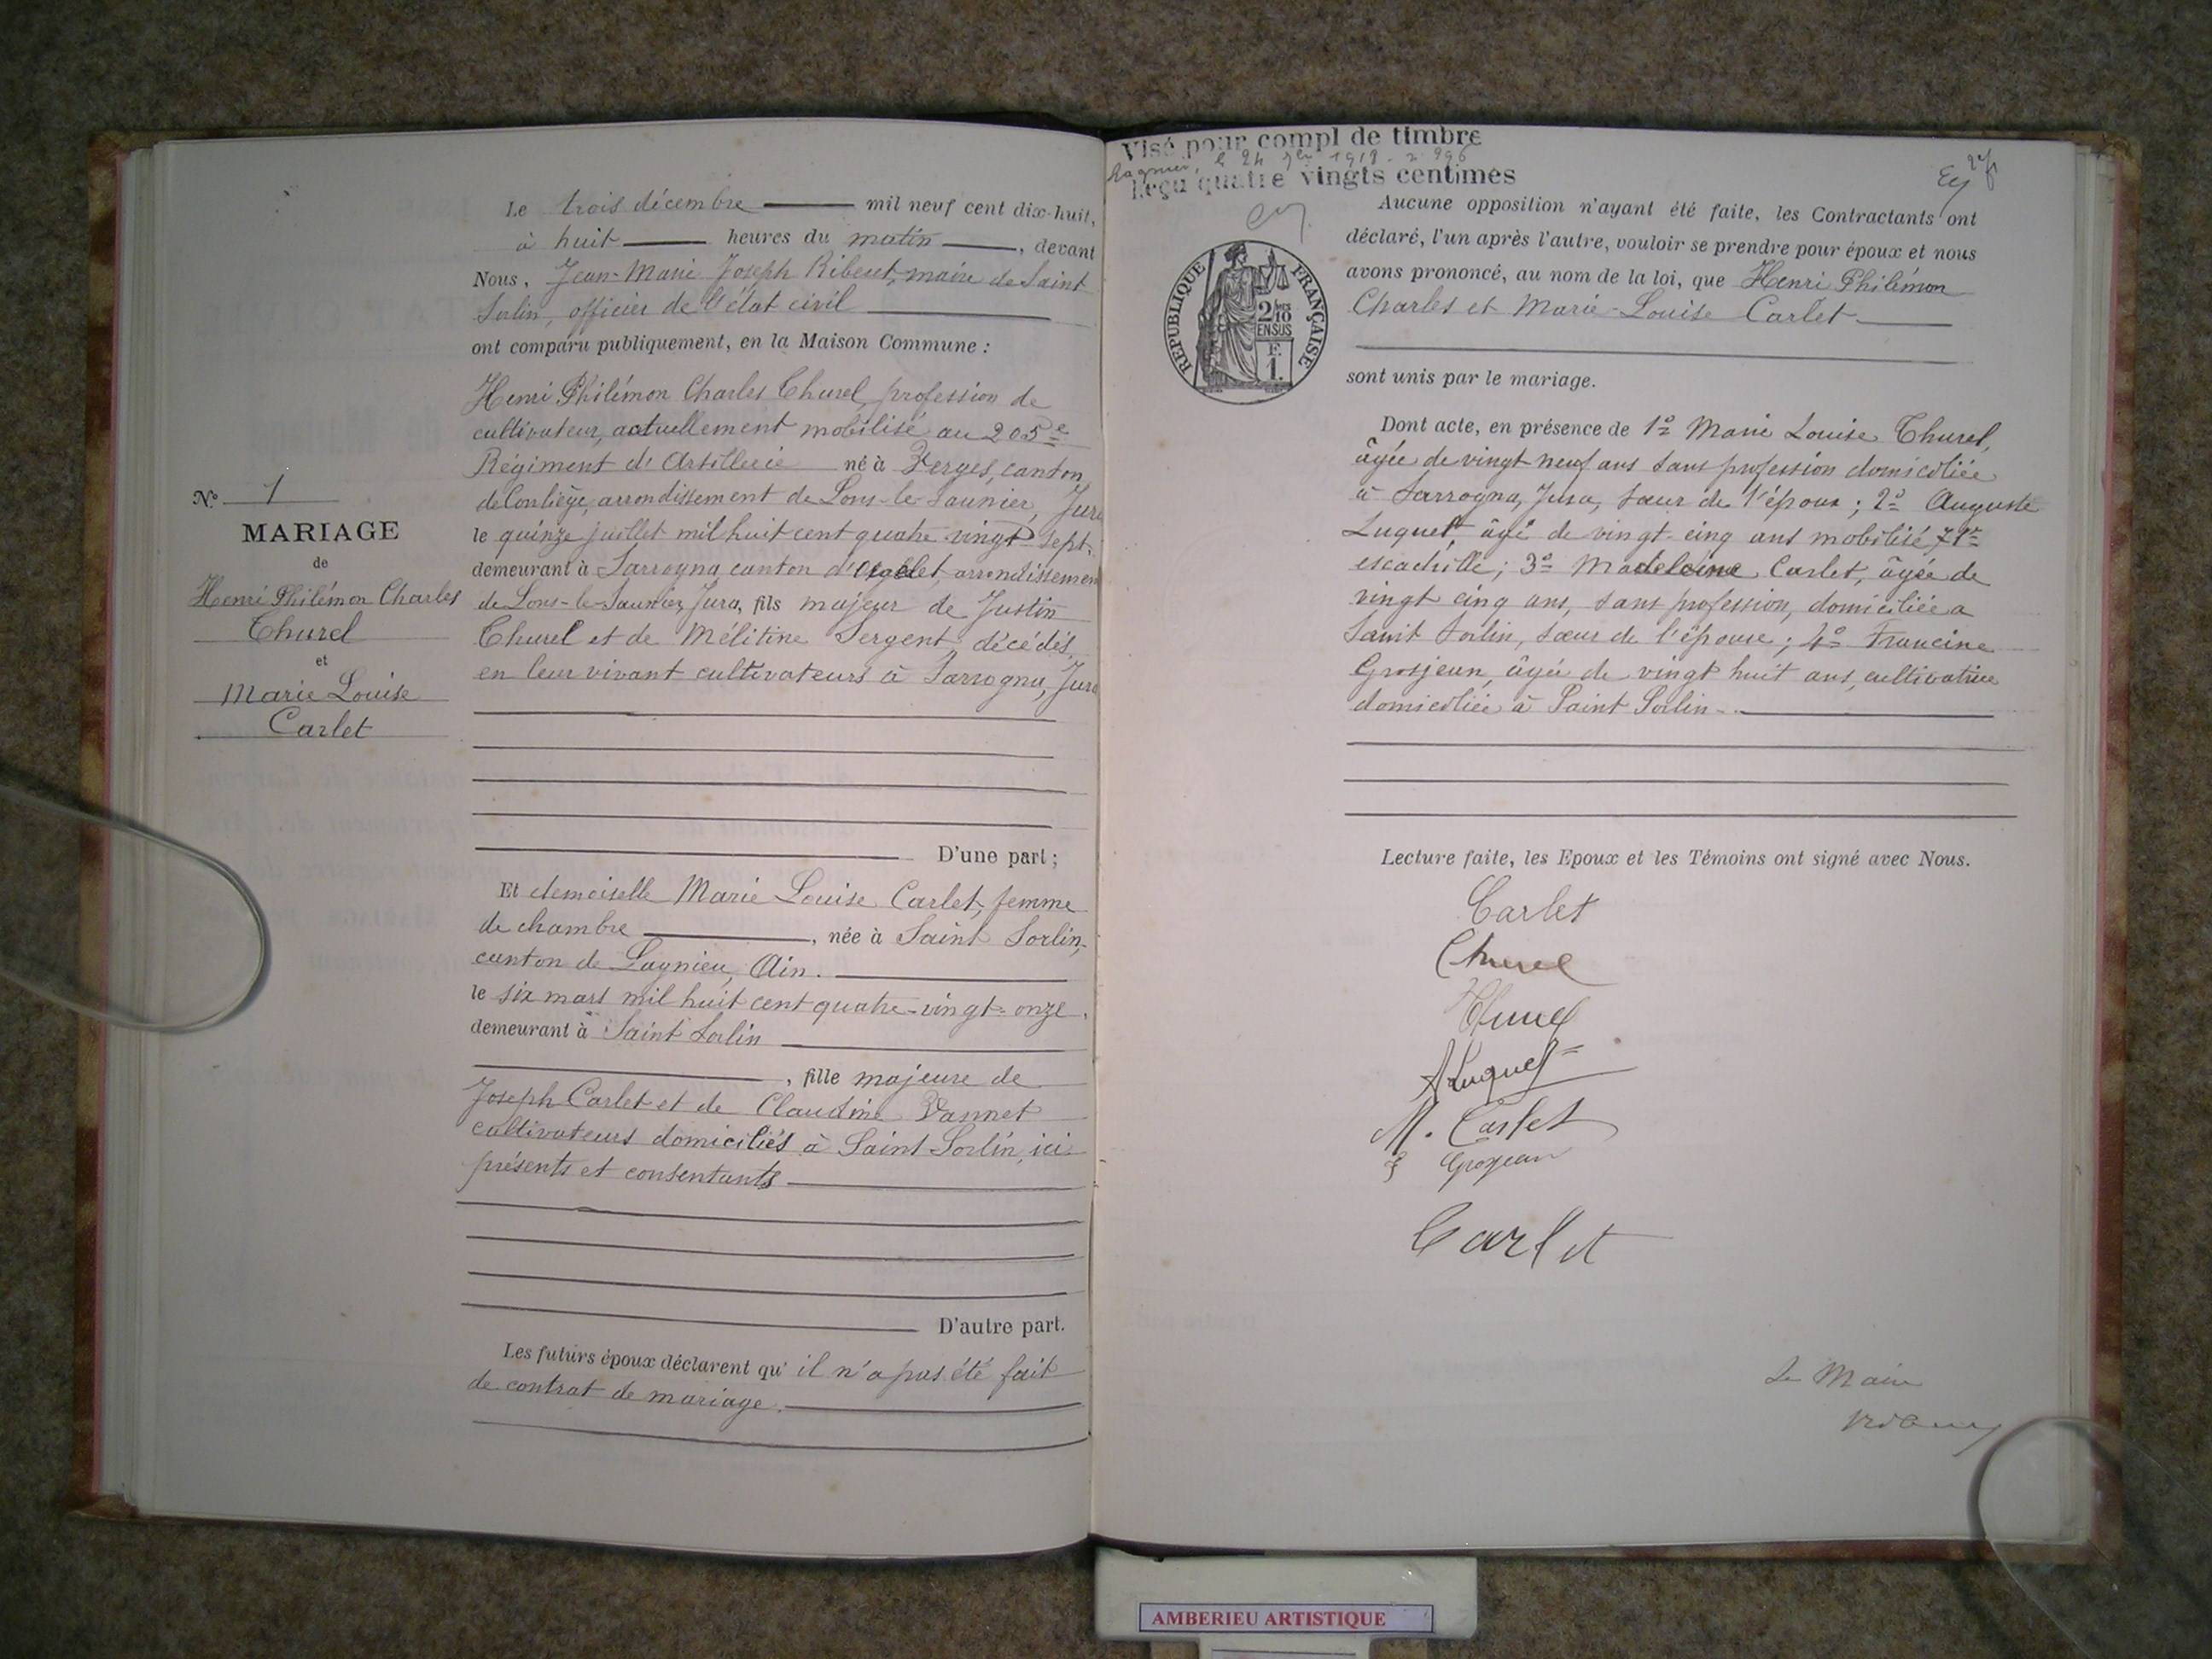 Le trois décembre mil neuf cent dix-huit,
à huit heures du matin, devant
Nous, Jean-Marie Joseph Ribeset, maire de Saint
Sorlin, officier de l'état civil
ont comparu publiquement, en la Maison Commune :
Henri Philémon Charles Thurel, profession de
cultivateur, actuellement mobilisé au 205e
Régiment d'Artillerie né à Verges, canton
de Conliège, arrondissement de Lons-le-Saunier, Jura
le quinze juillet mil huit cent quatre vingt sept,
demeurant à Sarrogna canton d'Orgelet, arrondissement
de Lons-le-Saunier, Jura, fils majeur de Justin
Thurel et de Mélitine Sergent, décédés,
en leur vivant cultivateurs à Sarrogna, Jura
D'une part ;
Et demoiselle Marie Louise Carlet, femme
de chambre, née à Saint Sorlin,
canton de Lagnieu, Ain.
le six mars mil huit cent quatre-vingt-onze,
demeurant à Saint Sorlin
, fille majeure de
Joseph Carlet et de Claudine Vannet
cultivateurs domiciliés à Saint Sorlin, ici
présents et consentants
D'autre part.
Les futurs époux déclarent qu'il n'a pas été fait
de contrat de mariage.
No 1
MARIAGE
de
Henri Philémon Charles
Thurel
et
Marie Louise
Carlet
Visé pour compl de timbre
Lagnieu, le 24 1919 - 996
Reçu quatre vingts centimes
RÉPUBLIQUE FRANÇAISE
2/10
EN SUS
F.
1.
Aucune opposition n'ayant été faite, les Contractants ont
déclaré, l'un après l'autre, vouloir se prendre pour époux et nous
avons prononcé, au nom de la loi, que Henri Philémon
Charles et Marie-Louise Carlet
sont unis par le mariage.
Dont acte, en présence de 1o Marie Louise Thurel,
âgée de vingt neuf ans sans profession domiciliée
à Sarrogna, Jura, sœur de l'époux ; 2o Auguste
Luquet, âgé de vingt-cinq ans mobilisé 71e
escadrille ; 3o Madeleine Carlet, âgée de
vingt cinq ans, sans profession, domiciliée a
Saint Sorlin, sœur de l'épouse ; 4o Francine
Grosjean, âgée de vingt huit ans, cultivatrice
domiciliée à Saint Sorlin
Lecture faite, les Epoux et les Témoins ont signé avec Nous.
Carlet
Thurel
Thurel
A Luquet
M. Carlet
F Grosjean
Carlet
Le Maire
AMBERIEU ARTISTIQUE